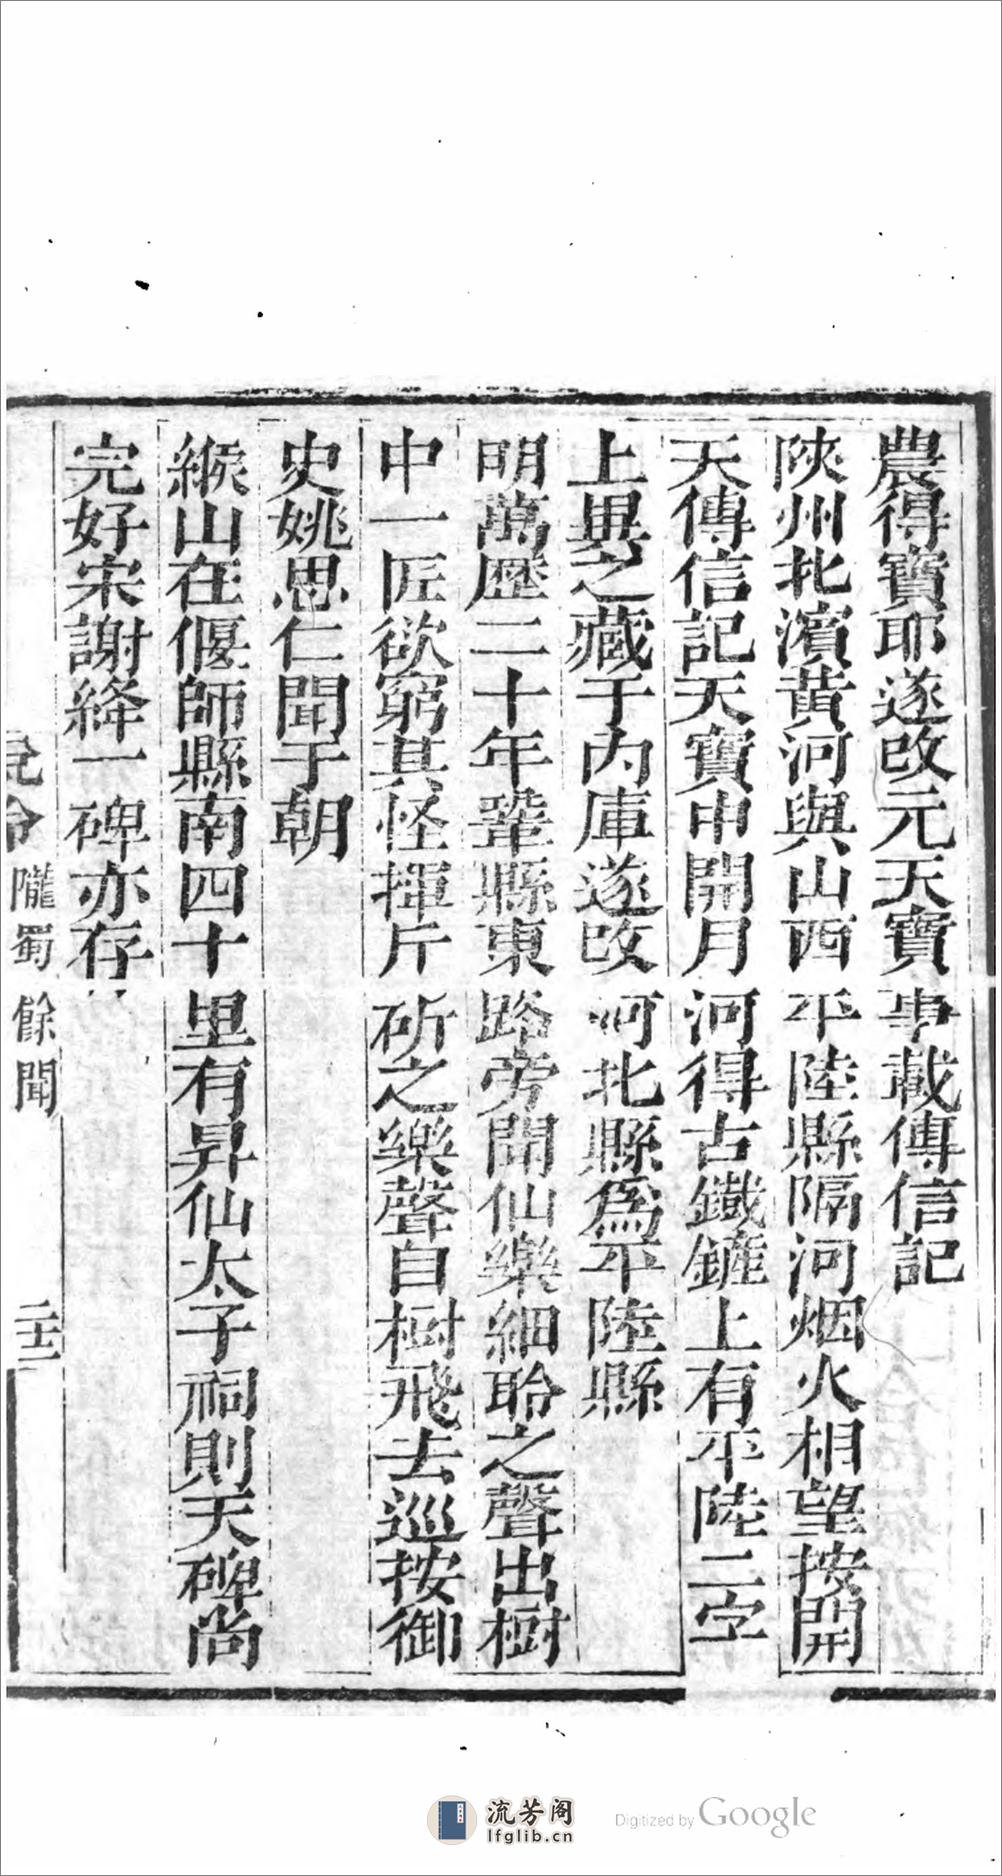 農得寶耶遂改元天寶事載傳信記
陝州北濱黃河與山西平陸縣隔河烟火相望按開
天傳信記天寶中開月河得古鐵鏵上有平陸二字
上異之藏于內庫遂改河北縣爲平陸縣
明萬歷二十年鞏縣東路旁聞仙樂細聆之聲出樹
中一匠欲窮其怪揮斤斫之樂聲自樹飛去巡按御
史姚思仁聞于朝
緱山在偃師縣南四十里有昇仙太子祠則天碑尚
完好宋謝絳一碑亦存
隴蜀餘聞
二十二
流芳阁
lfglib.cn
Digitized by Google